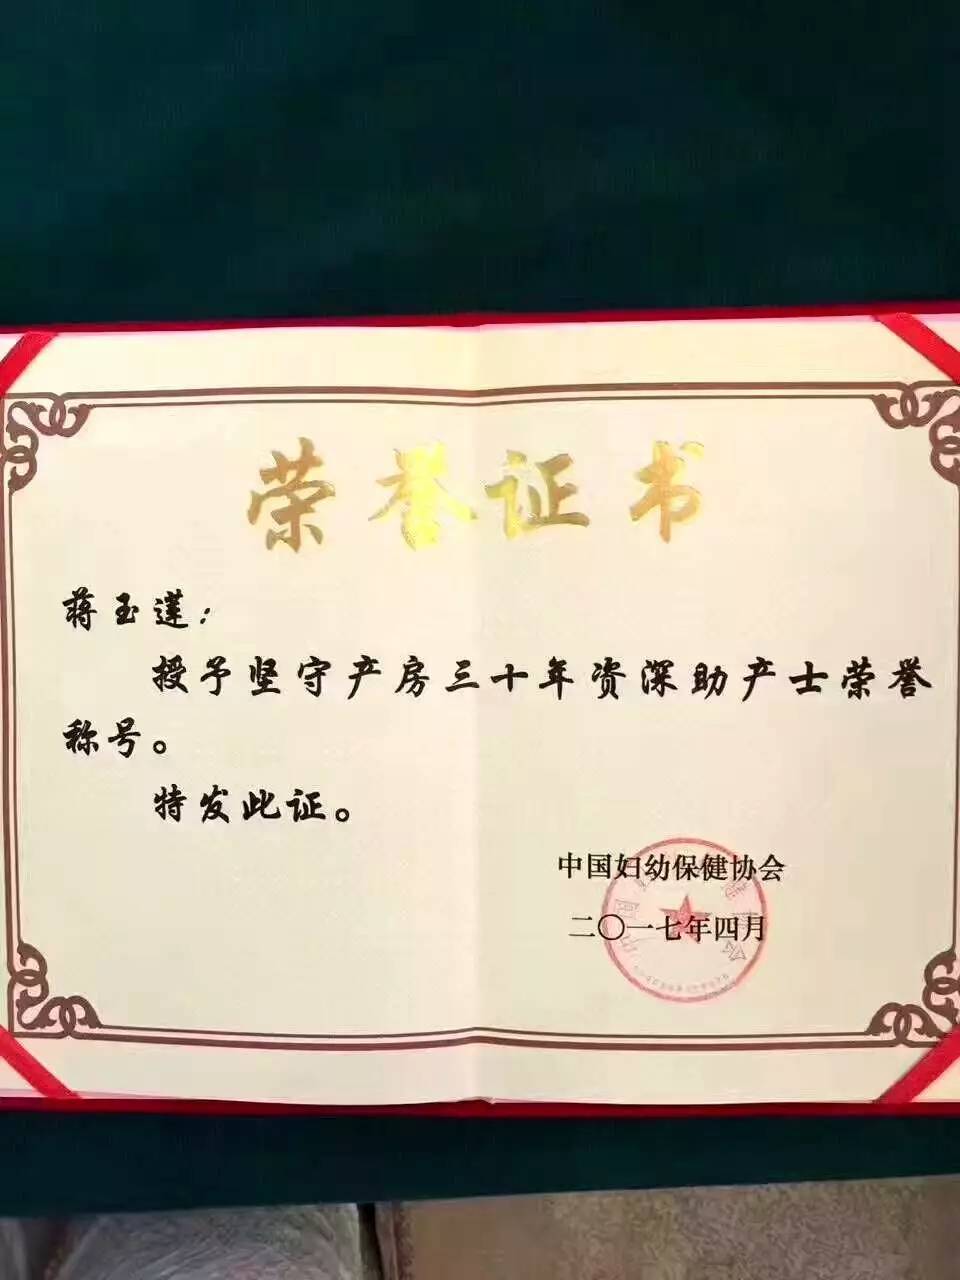 荣誉证书
蒋玉莲：
授予坚守产房三十年资深助产士荣誉
称号。
特发此证。
中国妇幼保健协会
二〇一七年四月